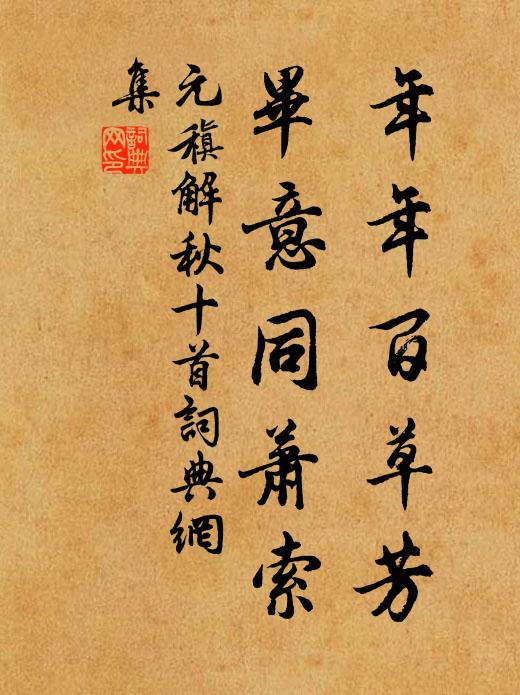 年年百草芳
畢意同蕭索
元稹解秋十首詞典網
集
詞典
网印